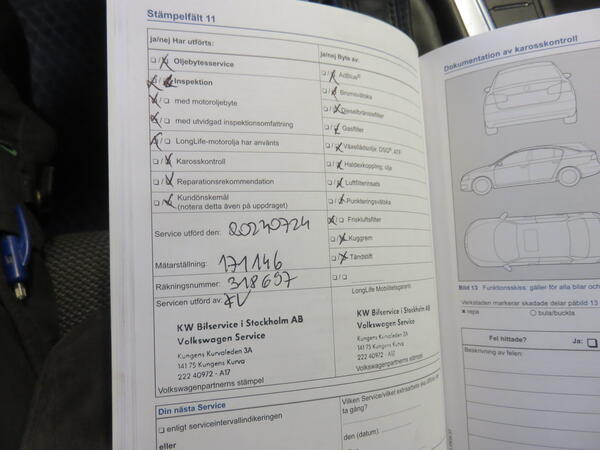 Stämpelfält 11
ja/nej Har utförts:
Oljebytesservice
Inspektion
med motoroljebyte
med utvidgad inspektionsomfattning
LongLife-motorolja har använts
Karosskontroll
Reparationsrekommendation
Kundönskemål
(notera detta även på uppdraget)
Service utförd den: 20230724
Mätarställning: 171146
Räkningsnummer: 318697
Servicen utförd av:
KW Bilservice i Stockholm AB
Volkswagen Service
Kungens Kurvaleden 3A
141 75 Kungens Kurva
222 40972 - A17
Volkswagenpartnerns stämpel
ja/nej Byte av:
AdBlue®
Bromsvätska
Dieselbränslefilter
Gasfilter
Växellådsolja: DSG®, ATF
Haldexkoppling: olja
Luftfilterinsats
Punkteringsvätska
Friskluftsfilter
Kuggrem
Tändstift
LongLife Mobilitetsgaranti
KW Bilservice i Stockholm AB
Volkswagen Service
Kungens Kurvaleden 3A
141 75 Kungens Kurva
222 40972 - A17
Volkswagenpartnerns stämpel
Din nästa Service
enligt serviceintervallindikeringen
eller
Vilken Service/vilket extraarbete ska utföras
ta gång?
den (datum)
Dokumentation av karosskontroll
Bild 13 Funktionsskiss: gäller för alla bilar och
Verkstaden markerar skadade delar på bild 13
x repa
o bula/buckla
Fel hittade? Ja:
Beskrivning av felen: